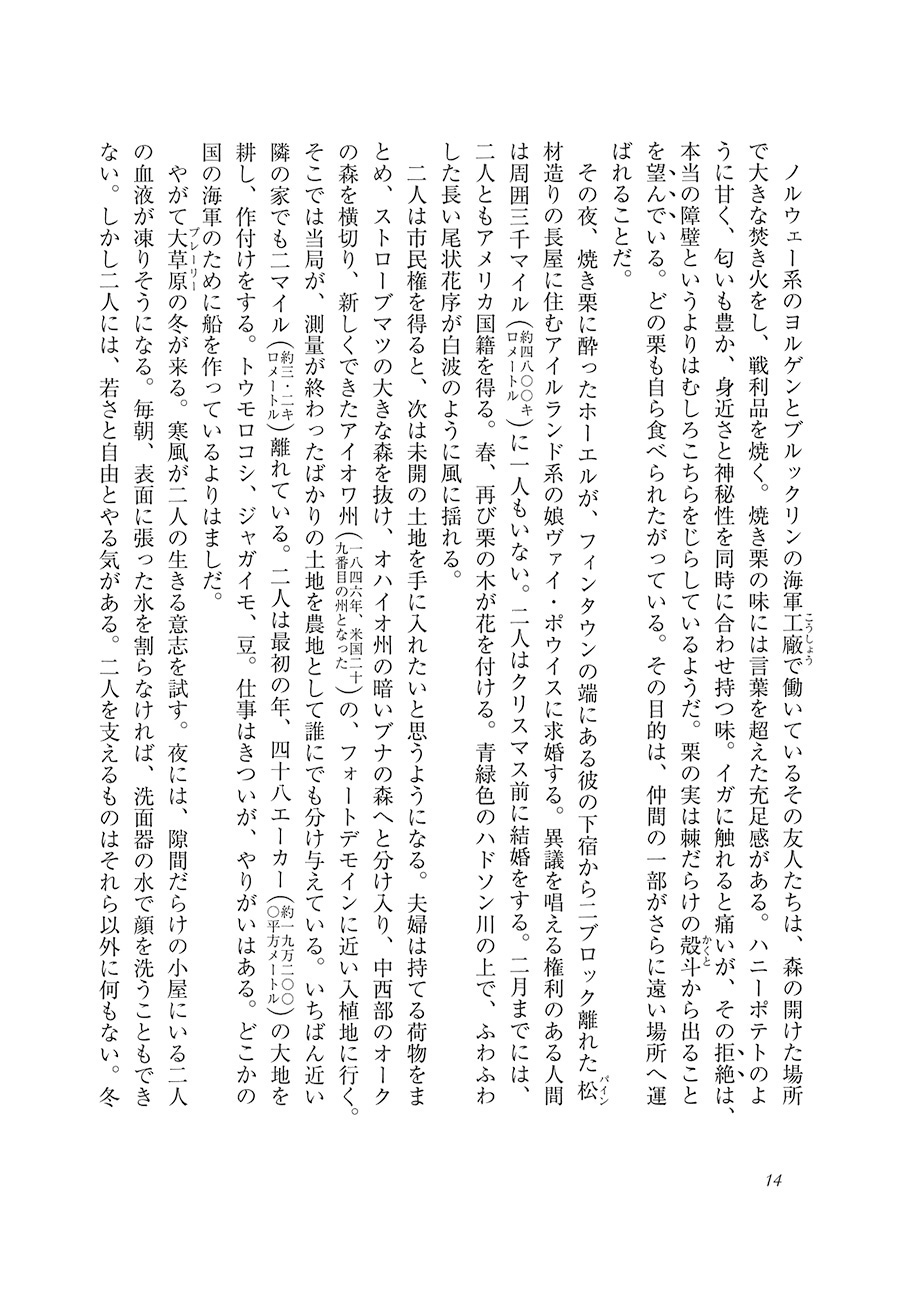 ノルウェー系のヨルゲンとブルックリンの海軍工廠で働いているその友人たちは、森の開けた場所
で大きな焚き火をし、戦利品を焼く。焼き栗の味には言葉を超えた充足感がある。ハニーポテトのよ
うに甘く、匂いも豊か、身近さと神秘性を同時に合わせ持つ味。イガに触れると痛いが、その拒絶は、
本当の障壁というよりはむしろこちらをじらしているようだ。栗の実は棘だらけの殻斗から出ること
を望んでいる。どの栗も自ら食べられたがっている。その目的は、仲間の一部がさらに遠い場所へ運
ばれることだ。
その夜、焼き栗に酔ったホーエルが、フィンタウンの端にある彼の下宿から二ブロック離れた松
材造りの長屋に住むアイルランド系の娘ヴァイ・ポウイスに求婚する。異議を唱える権利のある人間
は周囲三千マイル（約四八〇〇キロメートル）に一人もいない。二人はクリスマス前に結婚をする。二月までには、
二人ともアメリカ国籍を得る。春、再び栗の木が花を付ける。青緑色のハドソン川の上で、ふわふわ
した長い尾状花序が白波のように風に揺れる。
二人は市民権を得ると、次は未開の土地を手に入れたいと思うようになる。夫婦は持てる荷物をま
とめ、ストローブマツの大きな森を抜け、オハイオ州の暗いブナの森へと分け入り、中西部のオーク
の森を横切り、新しくできたアイオワ州（一八四六年、米国二十九番目の州となった）の、フォートデモインに近い入植地に行く。
そこでは当局が、測量が終わったばかりの土地を農地として誰にでも分け与えている。いちばん近い
隣の家でも二マイル（約三・二キロメートル）離れている。二人は最初の年、四十八エーカー（約一九万二〇〇〇平方メートル）の大地を
耕し、作付けをする。トウモロコシ、ジャガイモ、豆。仕事はきついが、やりがいはある。どこかの
国の海軍のために船を作っているよりはましだ。
やがて大草原の冬が来る。寒風が二人の生きる意志を試す。夜には、隙間だらけの小屋にいる二人
の血液が凍りそうになる。毎朝、表面に張った氷を割らなければ、洗面器の水で顔を洗うこともでき
ない。しかし二人には、若さと自由とやる気がある。二人を支えるものはそれら以外に何もない。冬
こうしょう
かくと
パイン
プレーリー
14